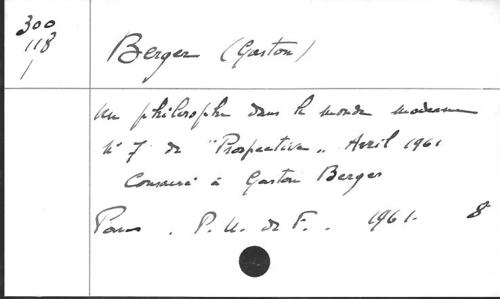 300
118
1
Berger (Gaston)
Un philosophe dans le monde moderne
N° 7 de "Prospective" Avril 1961
Consacré à Gaston Berger
Paris. P. U. de F. . 1961. 8°